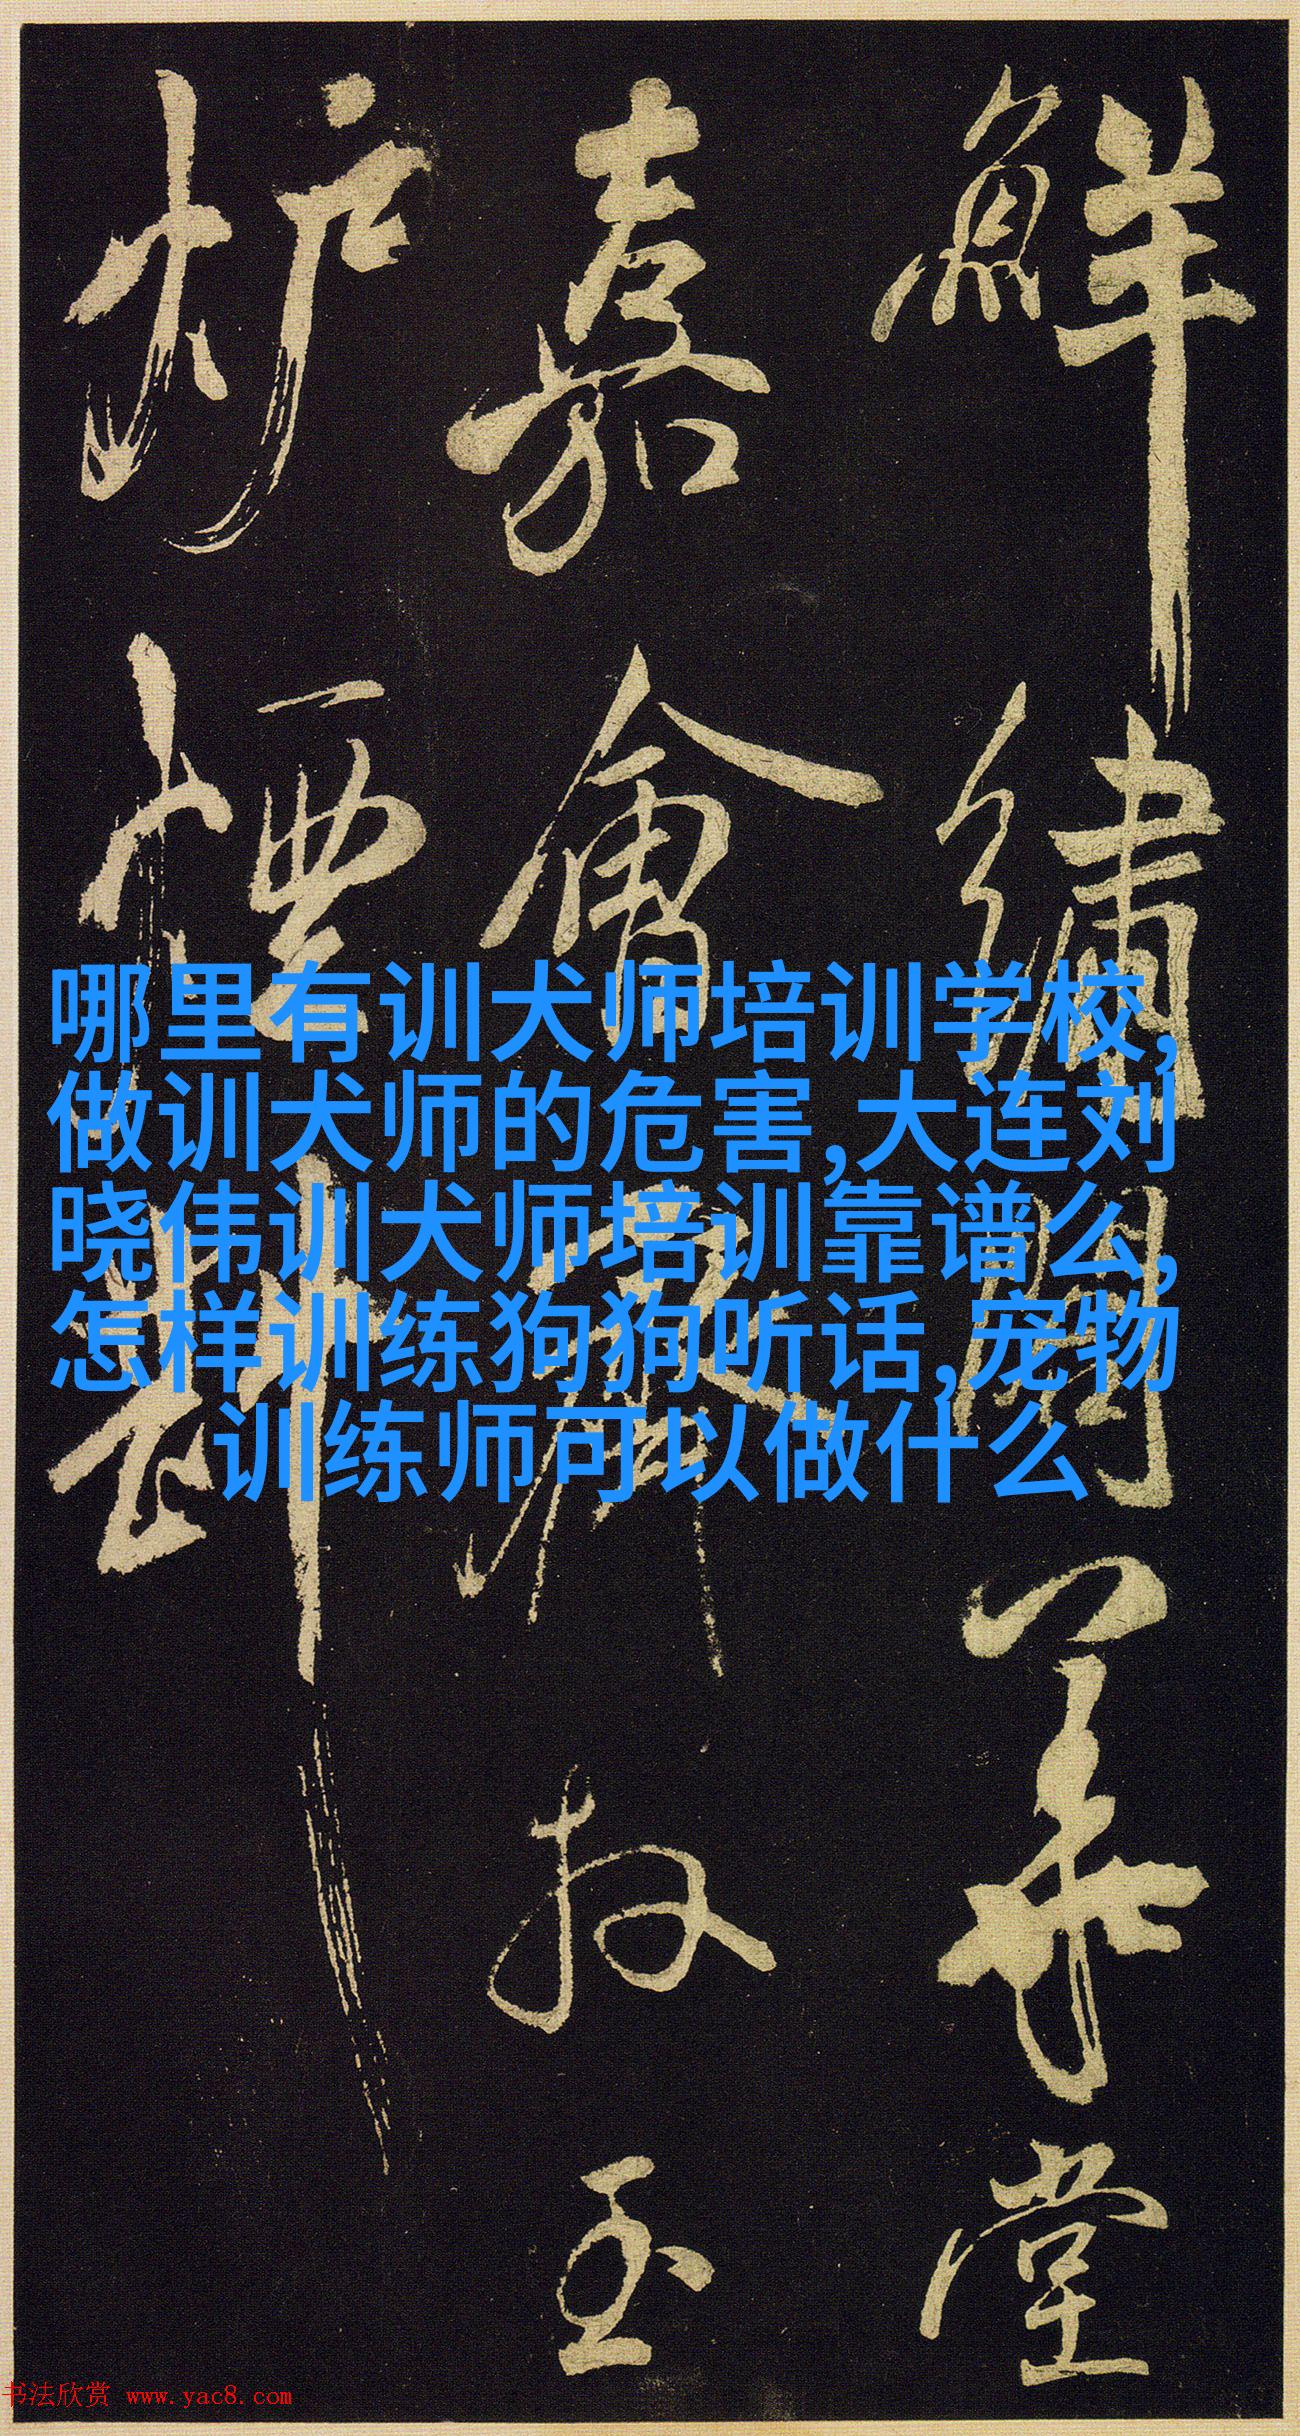 鮮繡華堂
嘉會玉
炉
哪里有训犬师培训学校,
做训犬师的危害,大连刘
晓伟训犬师培训靠谱么,
怎样训练狗狗听话,宠物
训练师可以做什么
书法欣赏 www.yac8.com